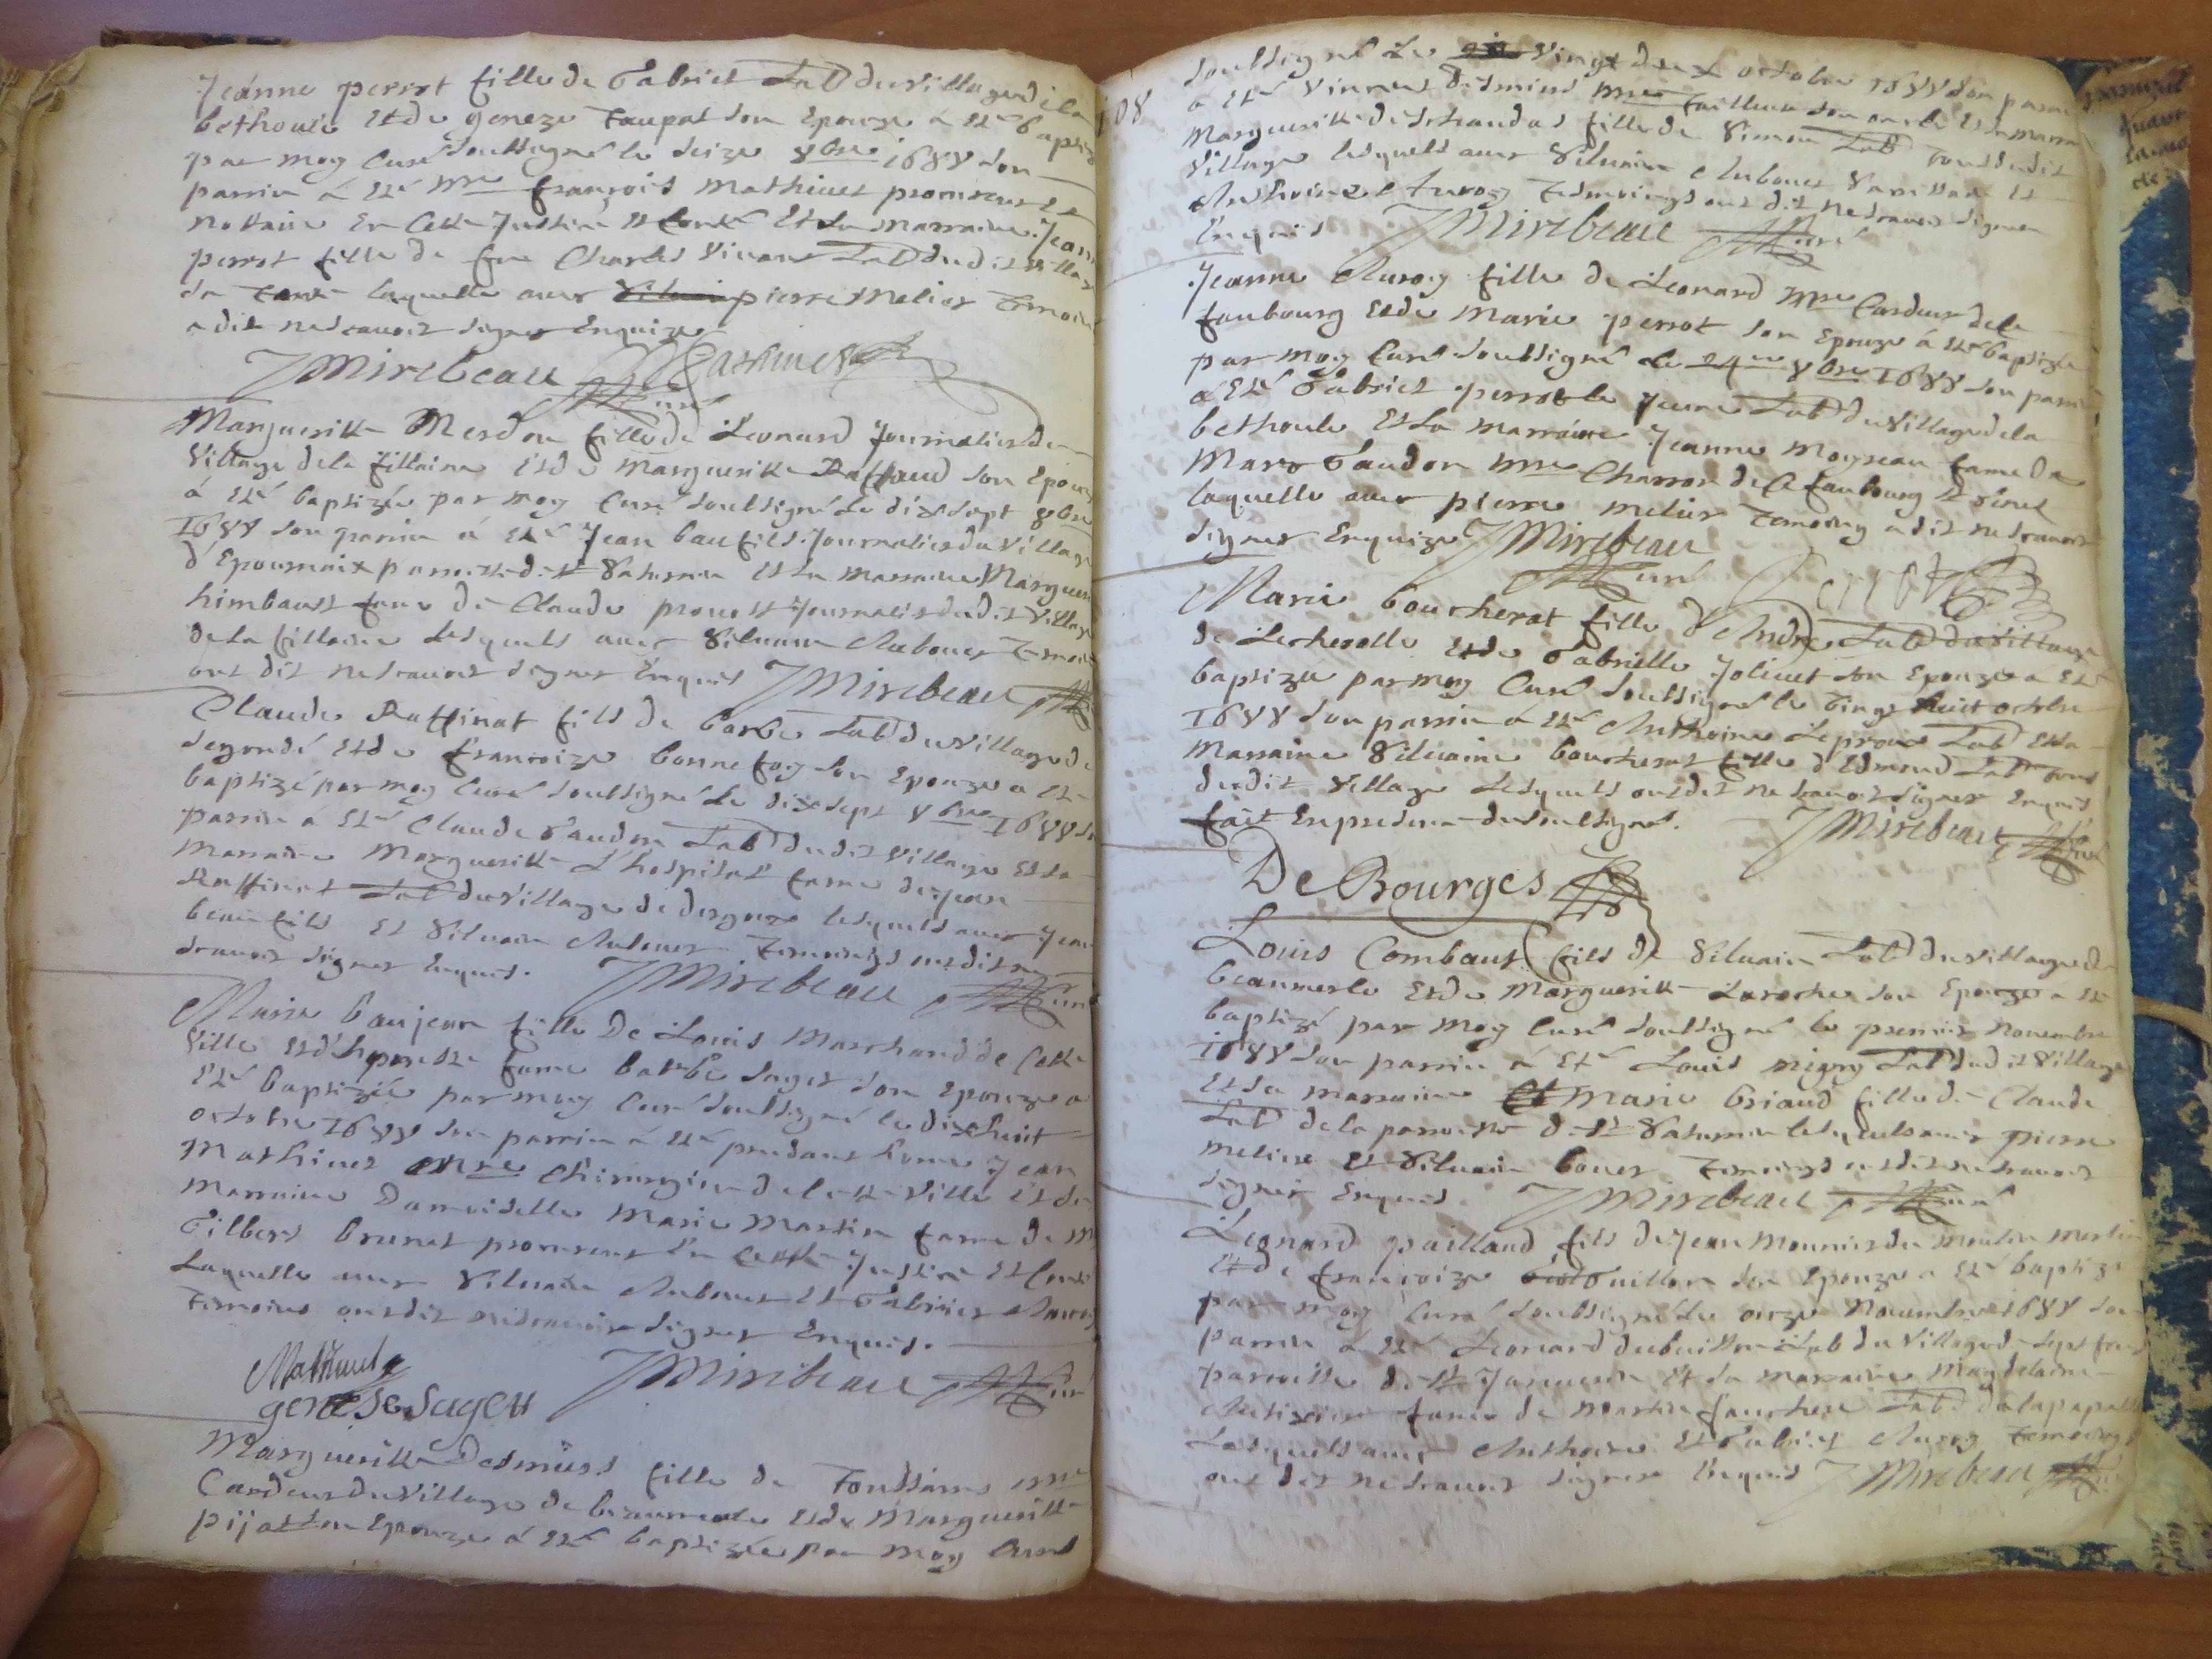 Jeanne perrot fille de Gabriel Lab du village de la
bethoule Et de geneze Taupat son Epouze à Esté baptizé
par moy Curé soubsigné le seize 8bre 1688 son
parrin à Esté mre françois Mathivet procureur Et
nottaire En Cette Justice Et Conté Et sa marraine Jeanne
perrot fille de feu Charles vivant Lab dudit village
laquelle avec pierre melier Temoin
a dit ne scavoir signer Enquize
JMirebeau curé
Margueritte Merdon fille de Leonard Journalier du
village de la fillaine Et de Margueritte Raffaud son Epouze
à Esté baptizée par moy Curé soubsigné Le dix sept 8bre
1688 son parrin à Esté Jean bau fils Journalier du village
parroisse de St Saturnin Et sa marraine Marguerite
himbault fame de Claude provost Journalier dudit village
de la fillaine Lesquels avec Silvain Aubouer Temoin
ont dit ne scavoir signer Enquis JMirebeau
Claude Raffinat fils de barbe Lab du village de
Et de francoize bonnefoy son Epouze a Esté
baptizé par moy Curé soubsigné Le dix sept 8bre 1688 son
parrin a Esté Claude Gaudon Lab dudit village Et sa
marraine Margueritte L'hospital fame de Jean
Raffinat Lab du village de lesquels avec Jean
beau fils Et Silvain Aubouer Temoings ont dit ne
scavoir signer Enquis. JMirebeau curé
Marie baujean fille De Louis Marchand de Cette
ville Et d'honneste fame barbe sager son Epouze a
Esté baptizée par moy Curé soubsigné le dix huit
octobre 1688 son parrin à Esté prudant home Jean
Mathivet Mre Chirurgien de Cette ville Et sa
marraine Damoiselle Marie Martin fame de Me
Gilbert brunet procureur En Cette Justice Et Conté
Laquelle avec Silvain Aubouer Et Gabriel Auroy
Temoins ont dit ne scavoir signer Enquis.
Mathivet JMirebeau curé
geneSe Sageu
Marguerittte Desmiers fille de Toussains mre
Cardeur du village de beaumerle Et de Marguerittte
son Epouze à Esté baptizée par moy Curé
108
soubsigné Le vingt deux octobre 1688 son parrin
à Esté vincent Desmiers mre Tailleur son oncle Et sa marraine
Marguerittte fille de Simon Lab Tous dudit
village lesquels avec Silvain Aubouer sacristain Et
Anthoine Auroy Tesmoings ont dit ne scavoir signer
Enquis JMirebeau curé
Jeanne Auroy fille de Leonard mre Cardeur de ce
faubourg Et de Marie perrot son Epouze à Esté baptizée
par moy Curé soubsigné Le 24me 8bre 1688 son parrin
à Esté Gabriel perrot le Jeune Lab du village de la
bethoule Et sa marraine Jeanne Moyseau fame de
Marc Gaudon mre Charron de Ce faubourg
laquelle avec pierre melier Temoing a dit ne scavoir
signer Enquize JMirebeau curé Perrot
Marie boucherat fille d'André Lab du village
de Lecherolle Et de Gabrielle Jolivet son Epouze a Esté
baptizée par moy Curé soubsigné le vingt huit octobre
1688 son parrin à Esté Anthoine Leprous Lab Et sa
Marraine Silvaine boucherat fille d'Edmond Lab Tous
dudit village Lesquels ont dit ne scavoir signer Enquis
fait En presence du soubsigné. JMirebeau curé
De Bourges
Louis Combaut fils de Silvain Lab du village de
beaumerle Et de Marguerittte Laroche son Epouze a Esté
baptizé par moy Curé soubsigné le premier Novembre
1688 son parrin à Esté Louis Lab dudit village
Et sa marraine Marie briaud fille de Claude
Lab de la parroisse de St Saturnin lesquels avec pierre
melier Et Silvain bouer Temoings ont dit ne scavoir
signer Enquis JMirebeau curé
Leonard paillaud fils de Jean Mounier du moulin
Et de francoize Guillon son Epouze a Esté baptizé
par moy Curé soubsigné Le onze Novembre 1688 son
parrin à Esté Leonard Lab du village de sept fons
parroisse de St Janverin Et sa marraine Magdelaine
fame de Martin Lab de la
Lesquels avec Anthoine Et Gabriel Auroy Temoings
ont dit ne scavoir signer Enquis JMirebeau curé